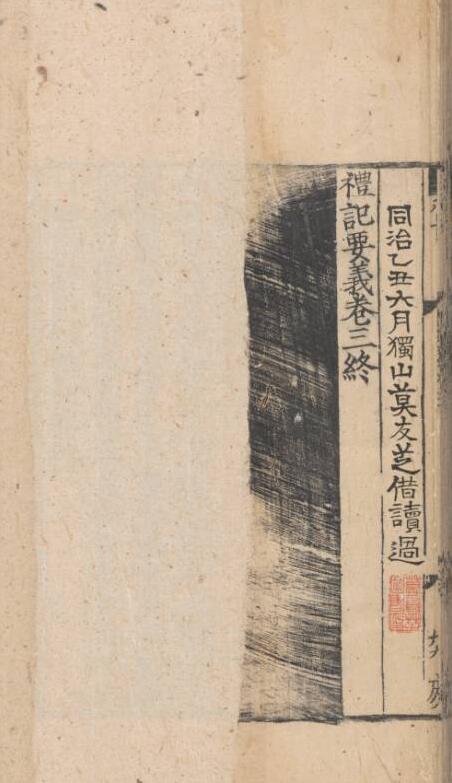 同治乙丑六月獨山莫友芝借讀過
禮記要義卷三終